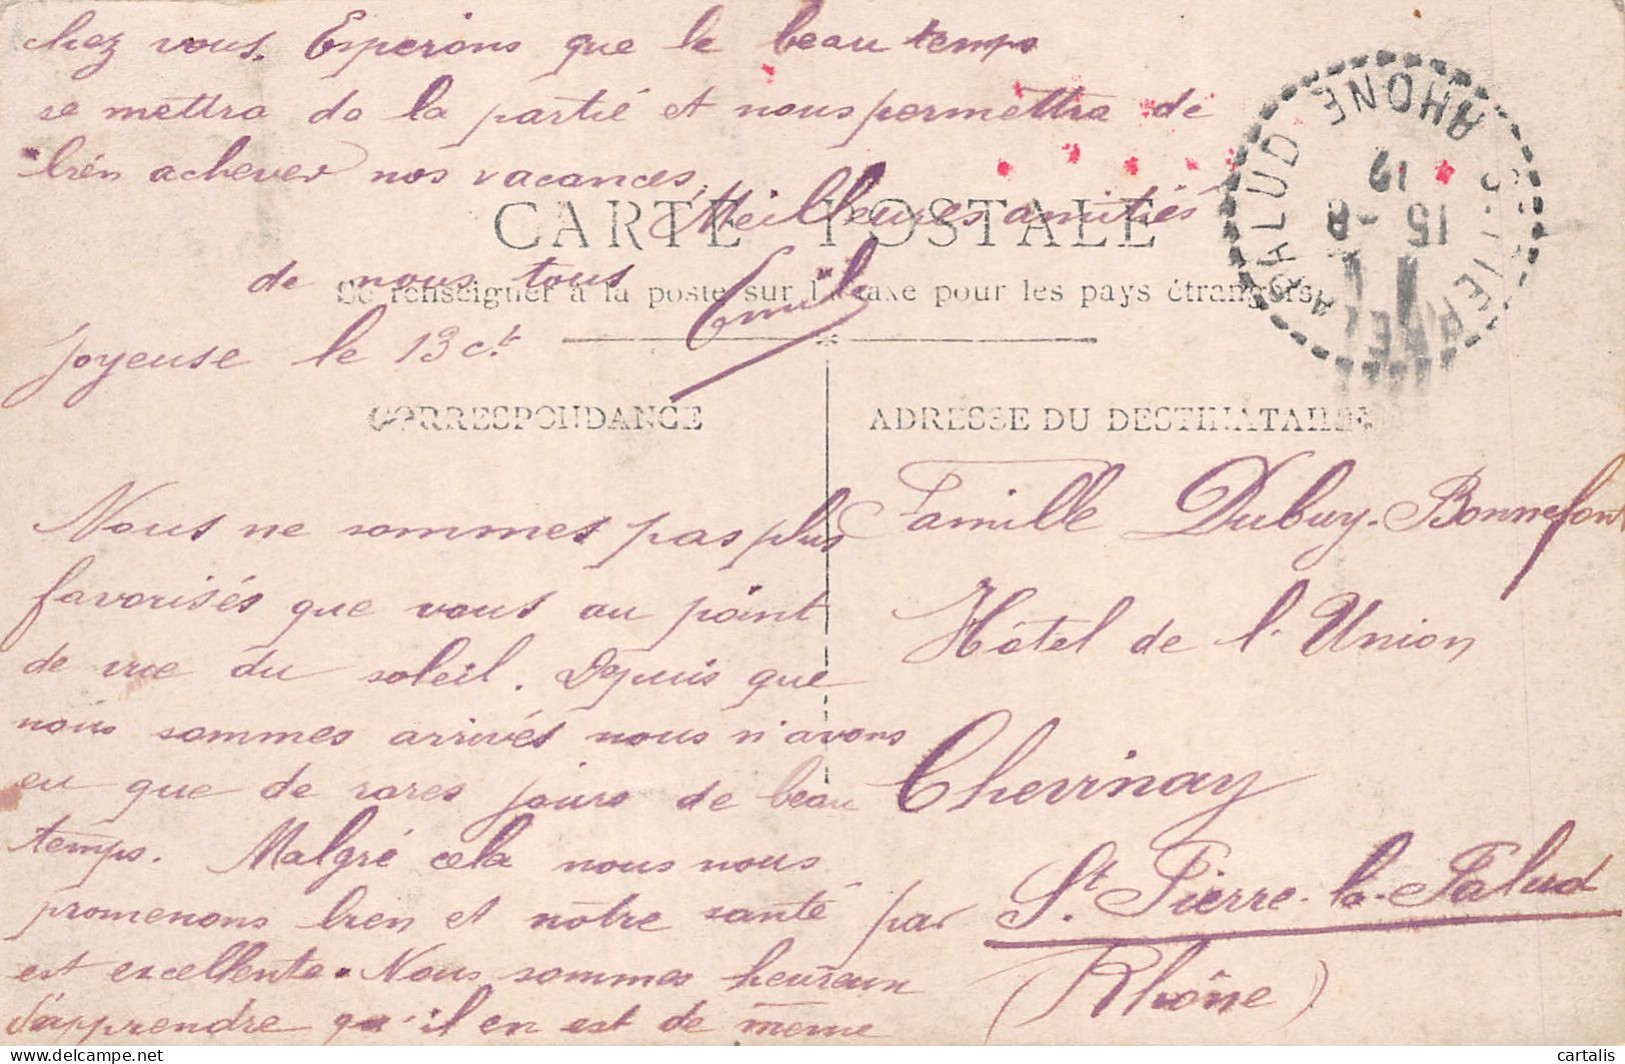 chez vous. Esperons que le beau temps
se mettra de la partie et nous permettra de
bien achever nos vacances.
Meilleures amitiés
de nous tous Emile
Joyeuse le 13 ct
CARTE POSTALE
Se renseigner à la poste sur la taxe pour les pays étrangers
CORRESPONDANCE
Nous ne sommes pas plus
favorisés que vous au point
de vue du soleil. Depuis que
nous sommes arrivés nous n'avons
eu que de rares jours de beau
temps. Malgré cela nous nous
promenons bien et notre santé
est excellente. Nous sommes heureux
d'apprendre qu'il en est de même
ADRESSE DU DESTINATAIRE
Famille Dubuy-Bonnefont
Hôtel de l'Union
Chevinay
par St. Pierre-la-Palud
(Rhône)
ST PIERRE LA PALUD RHONE
15 -8
12
cartalis